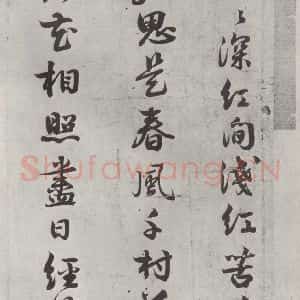 深紅間淺紅苦
思是春風千村
花相照盡日經
Shufawang.CN